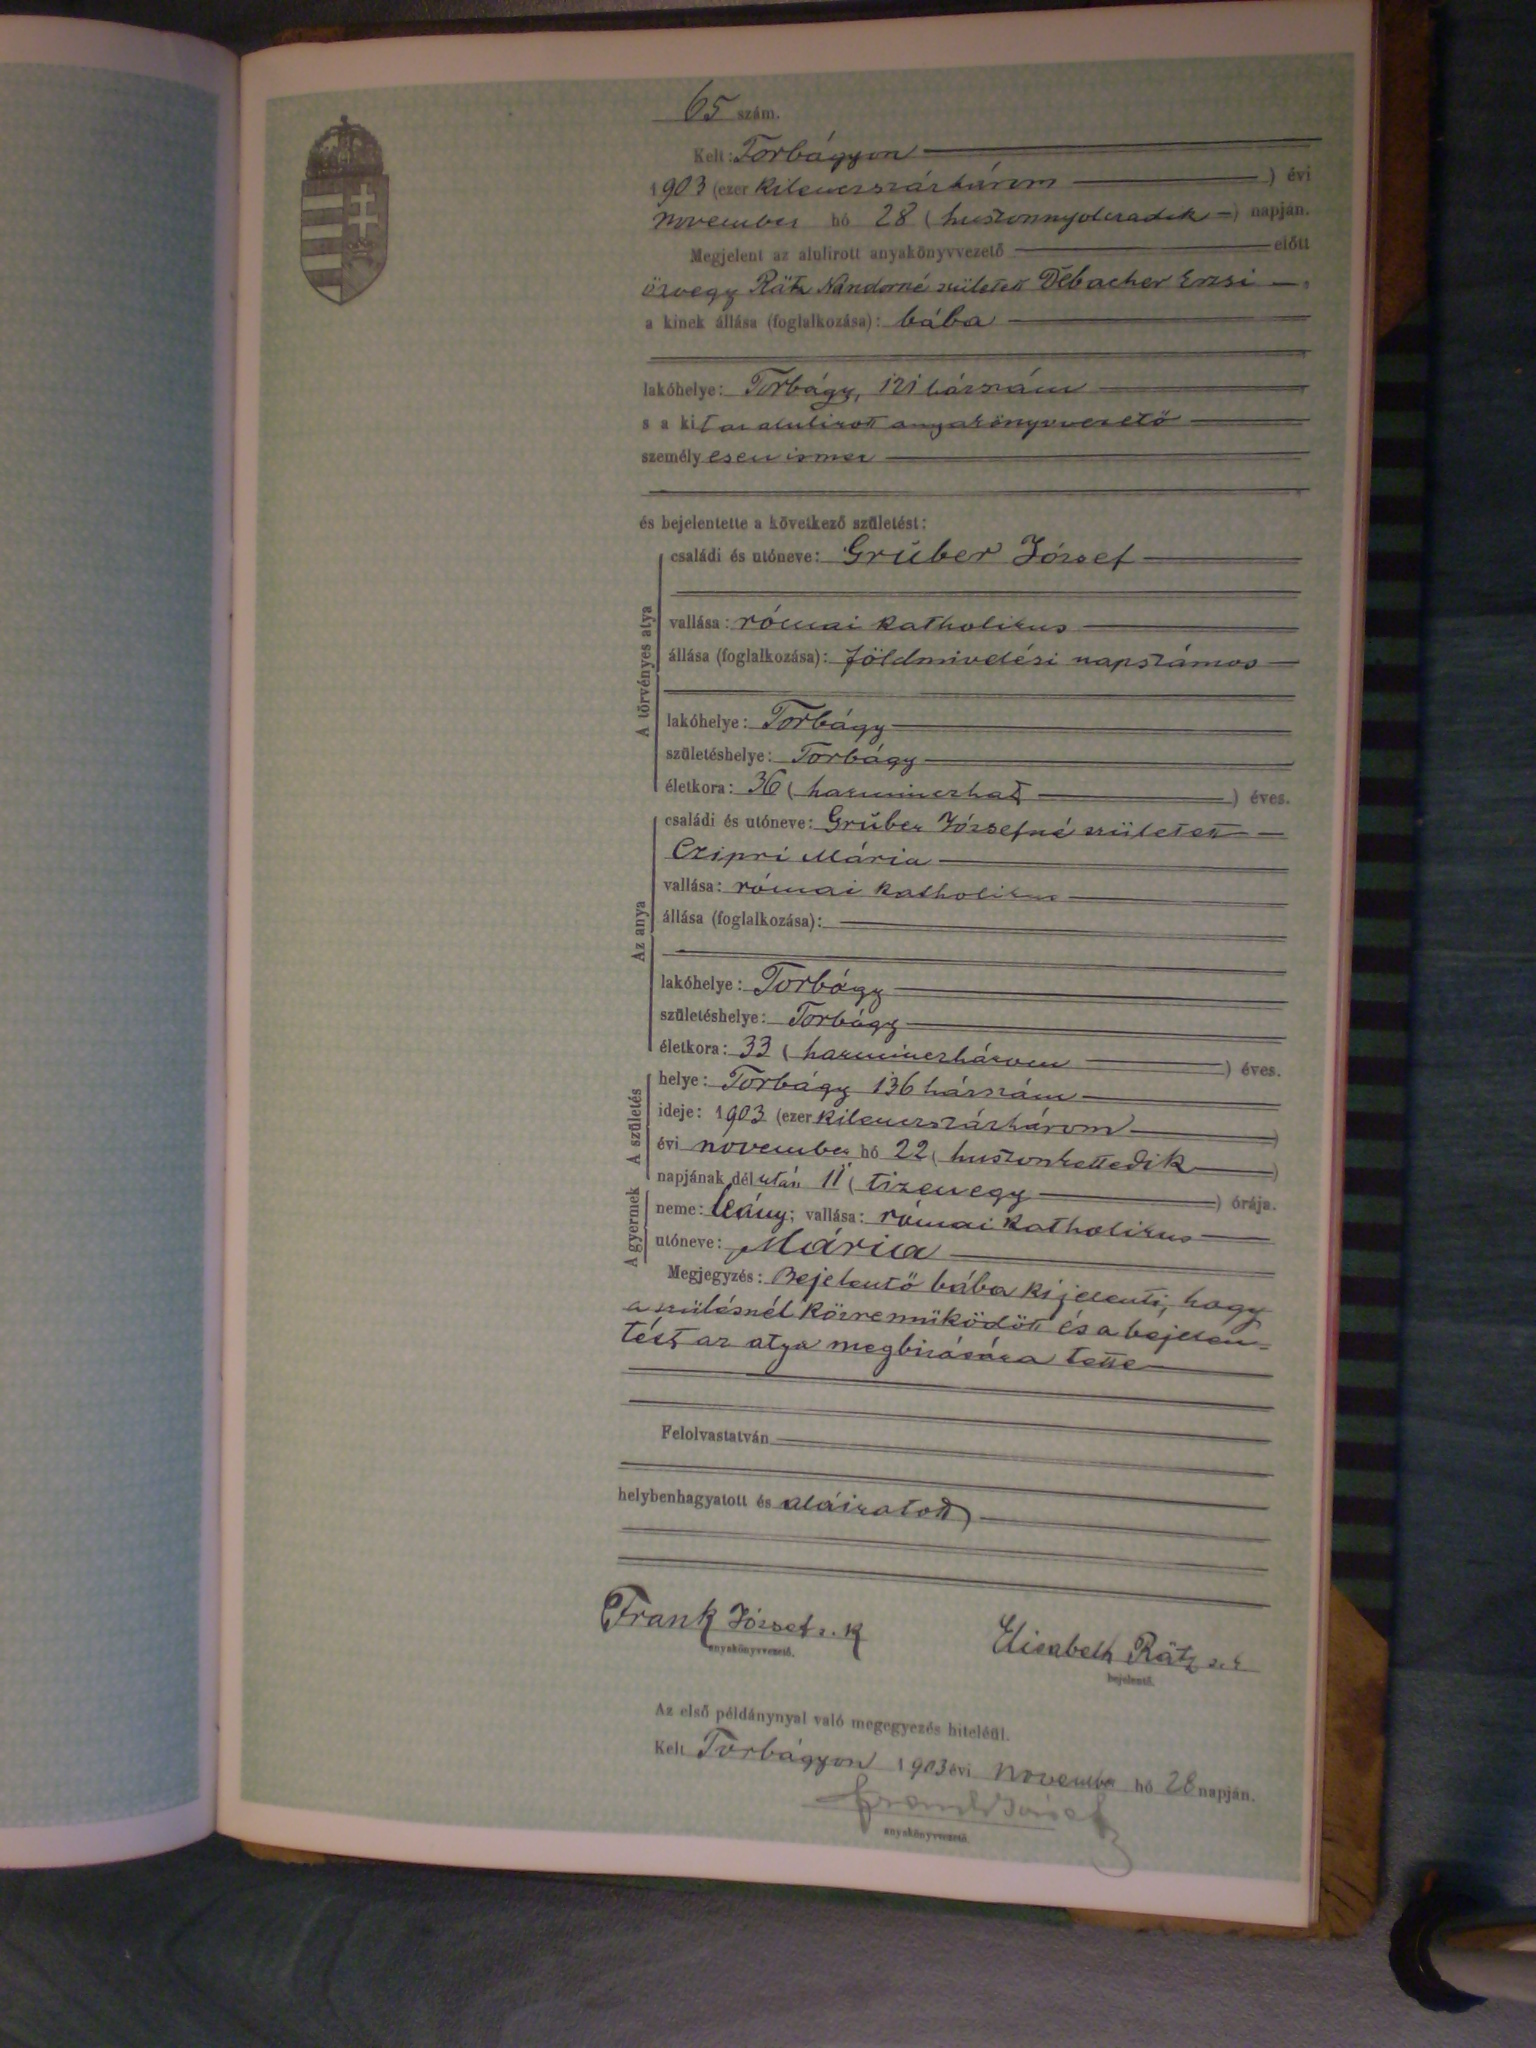 65 szám.
Kelt: Torbágyon
1903 (ezer kilenczszázhárom) évi
november hó 28 (huszonnyolczadik) napján.
Megjelent az alulirott anyakönyvvezető előtt
özvegy Rätz Nándorné született Debacher Erzsi,
a kinek állása (foglalkozása): bába
lakóhelye: Torbágy, 121 házszám
s a kit az alulirott anyakönyvvezető
személyesen ismer
és bejelentette a következő születést:
A törvényes atya
családi és utóneve: Grúber József
vallása: római katholikus
állása (foglalkozása): földmivelési napszámos
lakóhelye: Torbágy
születéshelye: Torbágy
életkora: 36 (harminczhat) éves.
Az anya
családi és utóneve: Grúber Józsefné született
Czipri Mária
vallása: római katholikus
állása (foglalkozása):
lakóhelye: Torbágy
születéshelye: Torbágy
életkora: 33 (harminczhárom) éves.
A születés
helye: Torbágy 136 házszám
ideje: 1903 (ezer kilenczszázhárom)
évi november hó 22 (huszonkettedik)
napjának délután 11 (tizenegy) órája.
A gyermek
neme: leány; vallása: római katholikus
utóneve: Mária
Megjegyzés: Bejelentő bába kijelenti, hogy
a szülésnél közreműködött és a bejelen=
tést az atya megbizására tette
Felolvastatván
helybenhagyatott és aláiratott
Frank József s. k
anyakönyvvezető.
Elisabeth Rätz s. k
bejelentő.
Az első példánynyal való megegyezés hiteléül.
Kelt Torbágyon 1903 évi november hó 28 napján.
Frank József
anyakönyvvezető.